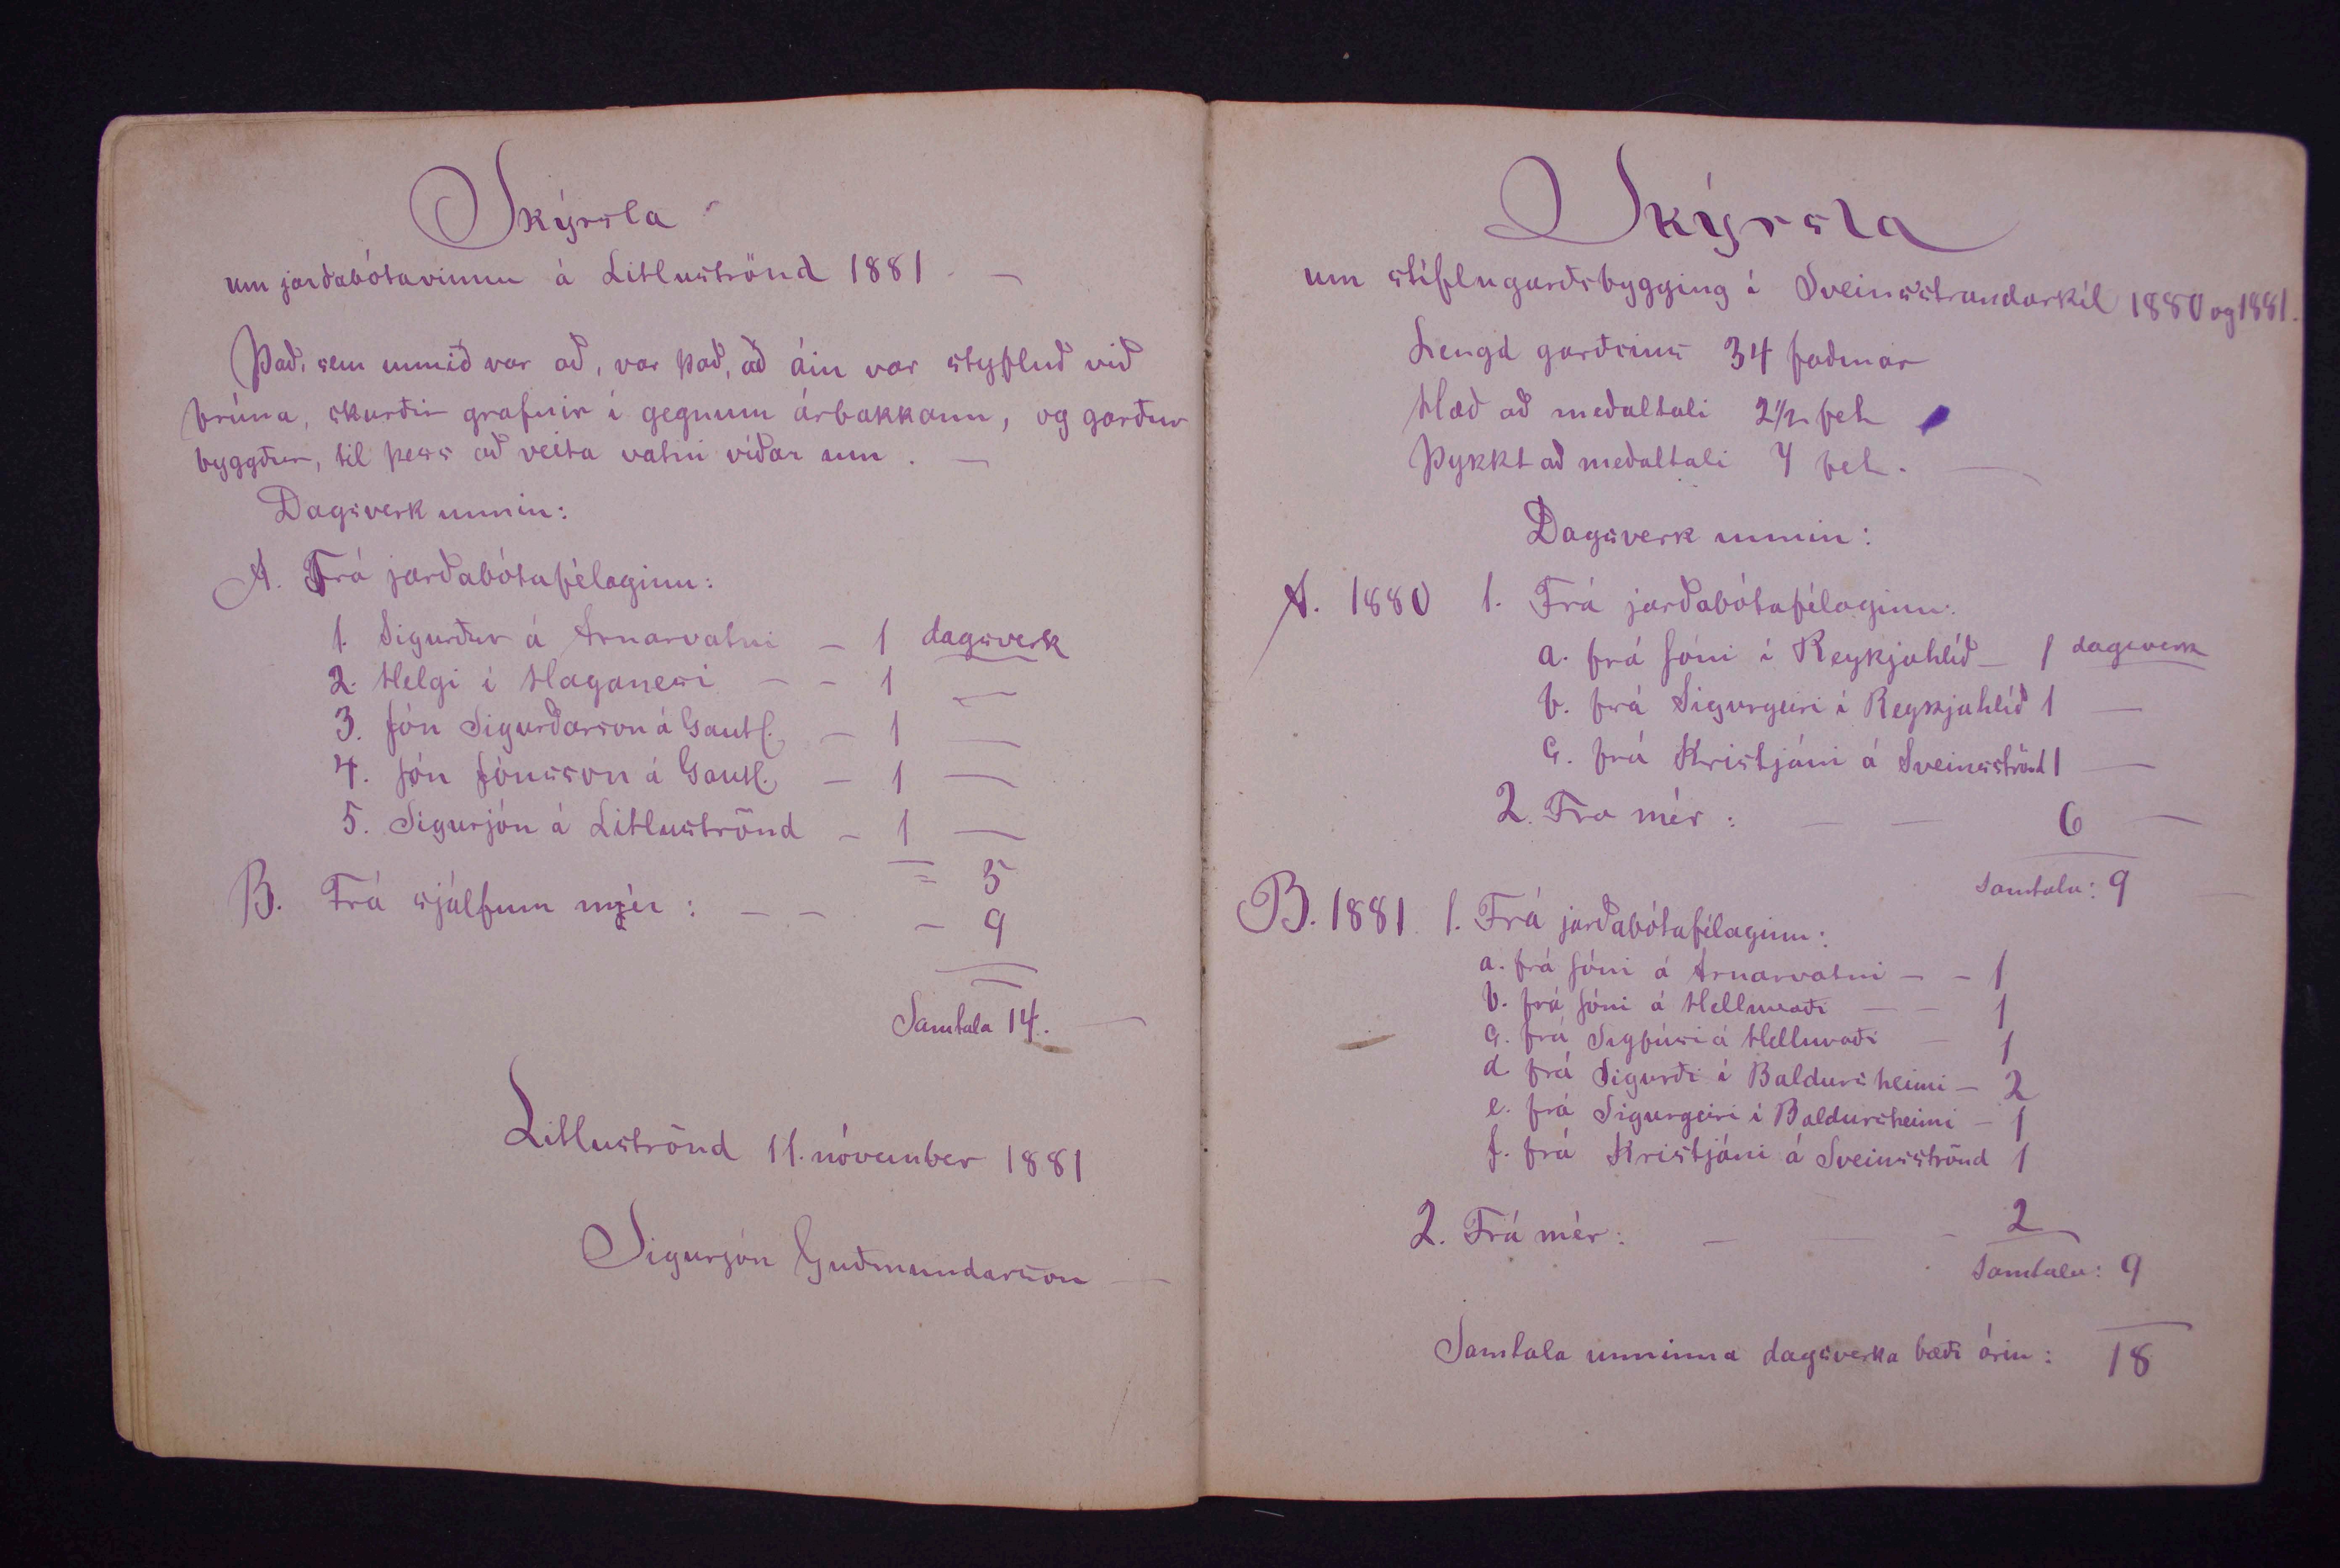 Skýrsla
um jarðabótavinnu á Litluströnd 1881. —
Það, sem unnið var að, var það, að áin var styfluð við
brúna, skurðir grafnir í gegnum árbakkann, og garður
byggður, til þess að veita vatni víðar um. —
Dagsverk unnin:
A. Frá jarðabótafélaginu:
1. Sigurður á Arnarvatni – 1 dagsverk
2. Helgi í Haganesi – – 1 —
3. Jón Sigurðarson á Gautl. – 1 —
4. Jón Jónsson á Gautl. – 1 —
5. Sigurjón á Litluströnd – 1 —
= 5
B. Frá sjálfum mér: – – – 9
Samtala 14. —
Litluströnd 11. nóvember 1881
Sigurjón Guðmundarson —
Skýrsla
um stíflugarðsbygging í Sveinsstrandarkíl 1880 og 1881.
Lengd garðsins 34 faðmar
Hæð að meðaltali 2 1/2 fet
Þykkt að meðaltali 4 fet. —
Dagsverk unnin:
A. 1880 1. Frá jarðabótafélaginu:
a. frá Jóni í Reykjahlíð – 1 dagsverk
b. frá Sigurgeiri í Reykjahlíð 1 —
c. frá Kristjáni á Sveinsströnd 1 —
2. Fra mér: — — 6 —
Samtala: 9 —
B. 1881. 1. Frá jarðabótafélaginu:
a. frá Jóni á Arnarvatni – – 1
b. frá Jóni á Helluvaði – – 1
c. frá Sigfúsi á Helluvaði – 1
d. frá Sigurði í Baldursheimi – 2
e. frá Sigurgeiri í Baldursheimi – 1
f. frá Kristjáni á Sveinsströnd 1
2. Frá mér: — — - 2
Samtala: 9
Samtala unninna dagsverka bæði árin: 18